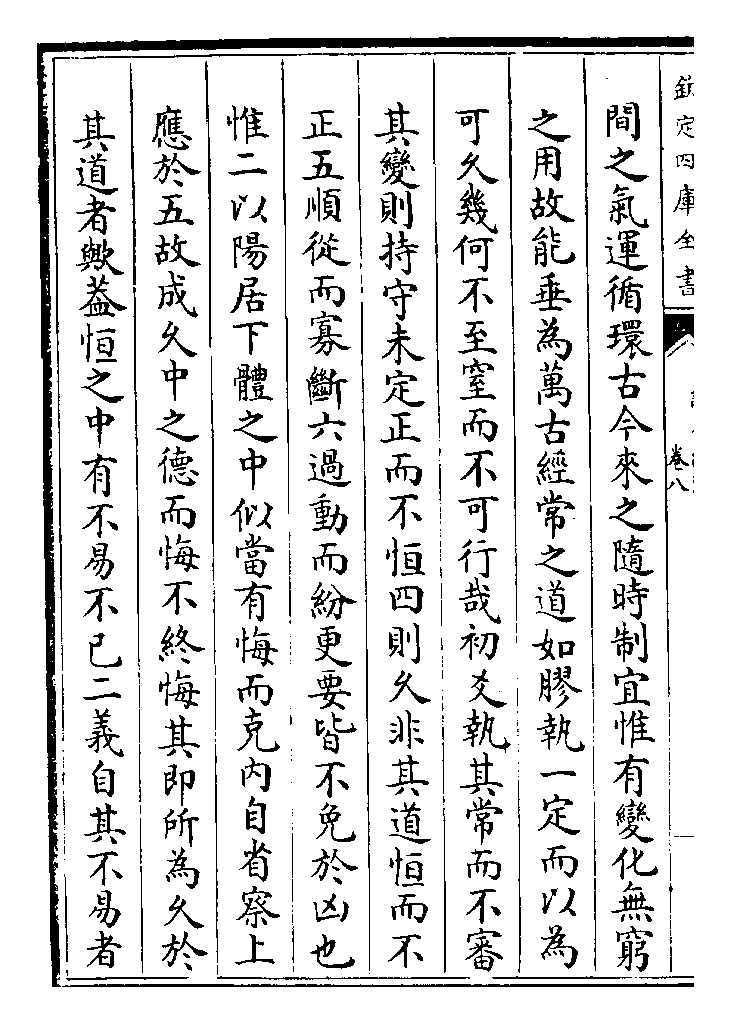 欽定四庫全書
卷八
間之氣運循環古今來之隨時制宜惟有變化無窮
之用故能垂為萬古經常之道如膠執一定而以為
可久幾何不至窒而不可行哉初爻執其常而不審
其變則持守未定正而不恒四則久非其道恒而不
正五順從而寡斷六過動而紛更要皆不免於凶也
惟二以陽居下體之中似當有悔而克內自省察上
應於五故成久中之德而悔不終悔其即所為久於
其道者歟葢恒之中有不易不已二義自其不易者